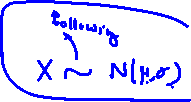 following
X ~ N(μ,σ)